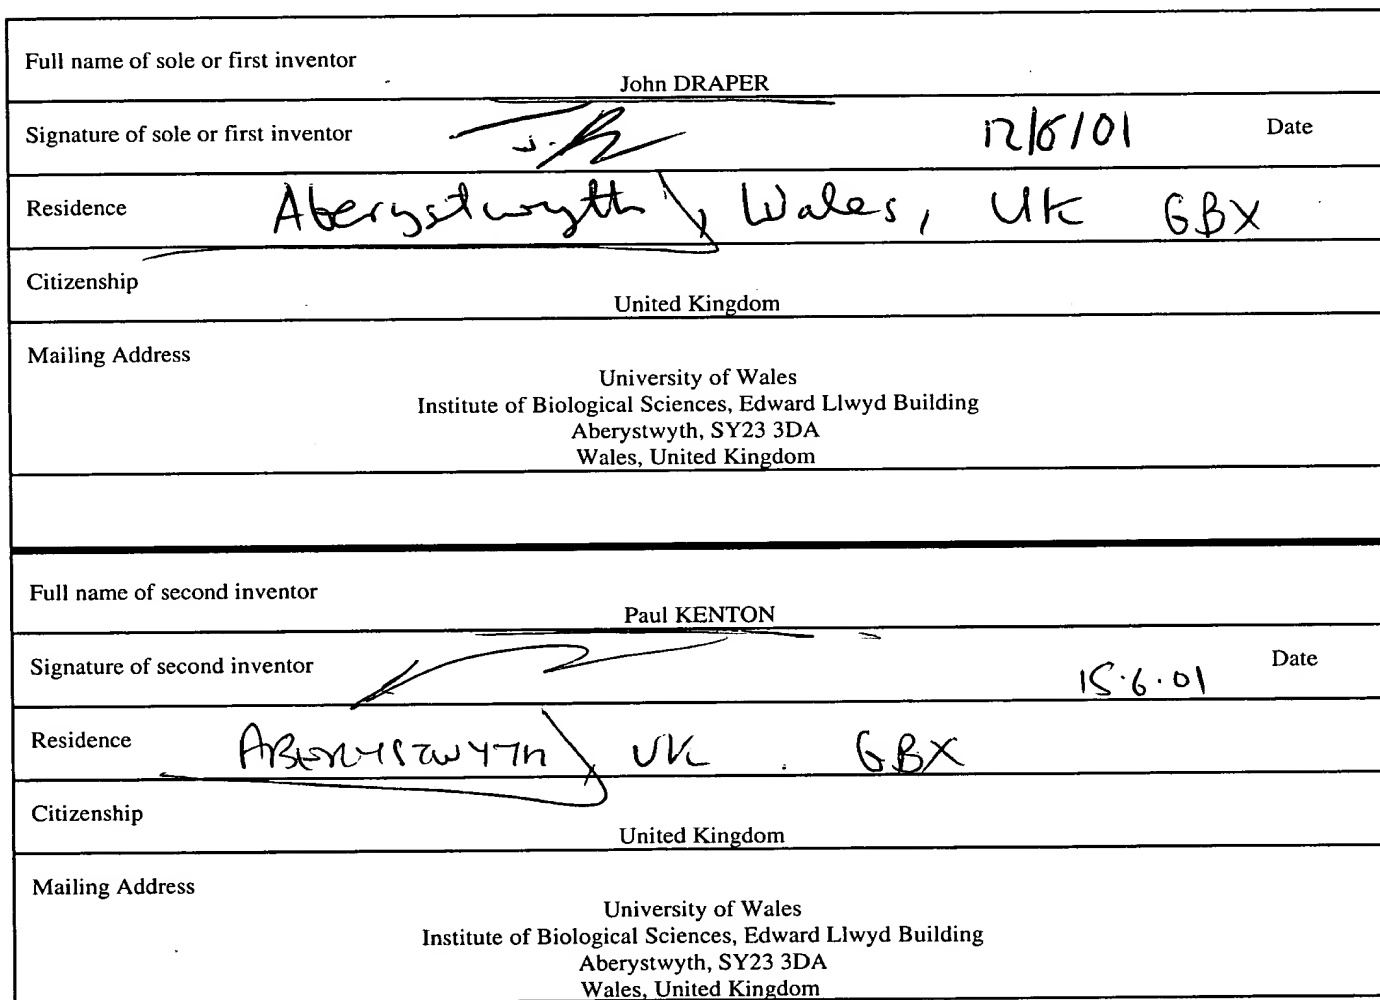 Full name of sole or first inventor
John DRAPER
Signature of sole or first inventor 12/6/01 Date
Residence Aberystwyth, Wales, UK GBX
Citizenship
United Kingdom
Mailing Address
University of Wales
Institute of Biological Sciences, Edward Llwyd Building
Aberystwyth, SY23 3DA
Wales, United Kingdom
Full name of second inventor
Paul KENTON
Signature of second inventor 15.6.01 Date
Residence ABERYSTWYTH, UK GBX
Citizenship
United Kingdom
Mailing Address
University of Wales
Institute of Biological Sciences, Edward Llwyd Building
Aberystwyth, SY23 3DA
Wales, United Kingdom